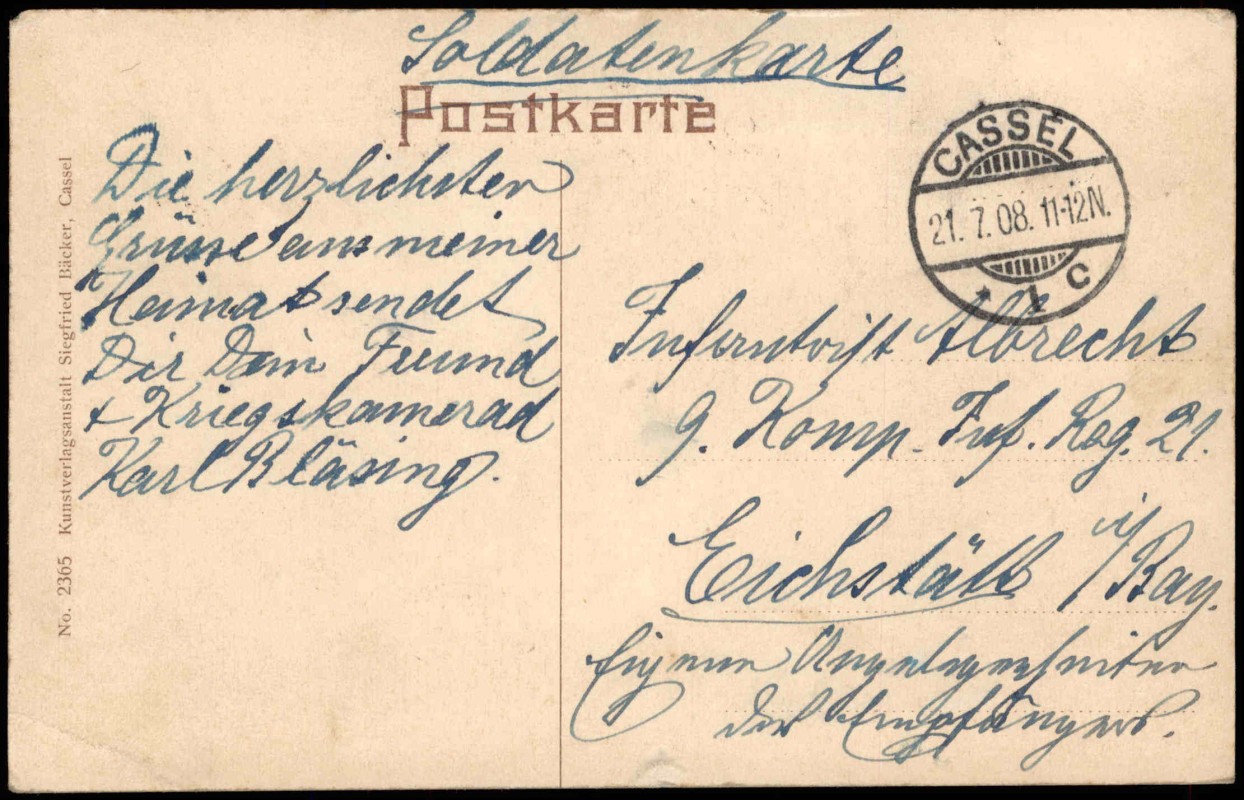 Soldatenkarte
Postkarte
CASSEL
21. 7. 08. 11-12N.
* 1 c
Die herzlichsten
Grüsse aus meiner
Heimat sendet
Dir Dein Freund
+ Kriegskamerad
Karl Bläsing.
Infanterist Albrecht
9. Komp. Inf. Reg. 21.
Eichstätt i/Bay.
Eigene Angelegenheiten
des Empfängers.
No. 2365 Kunstverlagsanstalt Siegfried Bäcker, Cassel